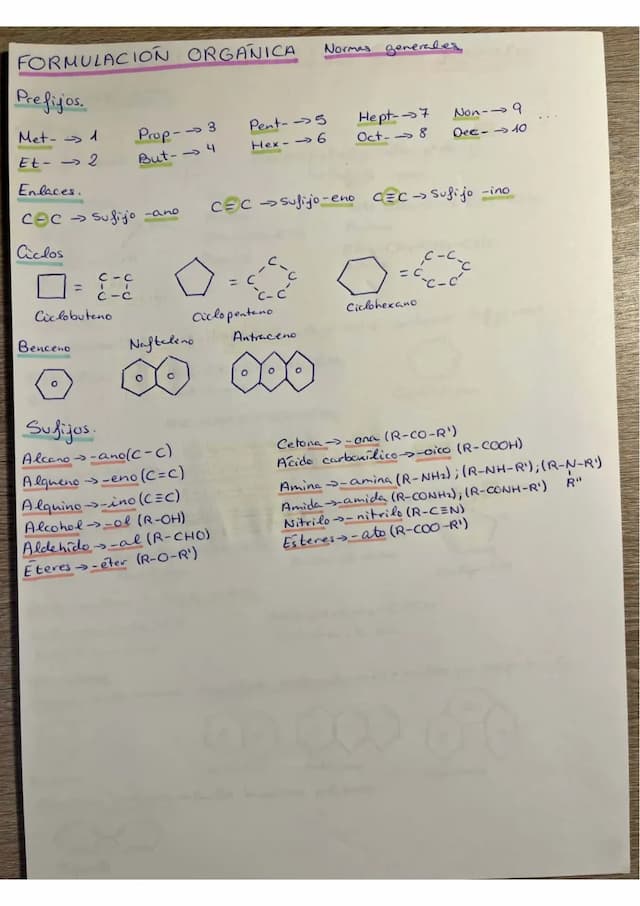 FORMULACIÓN ORGÁNICA Normas generales
Prefijos.
Met- → 1 Prop- → 3 Pent- → 5 Hept- → 7 Non- → 9 ...
Et- → 2 But- → 4 Hex- → 6 Oct- → 8 Dec- → 10
Enlaces.
C-C → Sufijo -ano C=C → Sufijo -eno C≡C → Sufijo -ino
Ciclos
= C-C C-C = C C C C-C = C-C C C C-C
Ciclobutano Ciclopentano Ciclohexano
Benceno Naftaleno Antraceno
Sufijos.
Alcano → -ano (C-C)
Alqueno → -eno (C=C)
Alquino → -ino (C≡C)
Alcohol → -ol (R-OH)
Aldehído → -al (R-CHO)
Éteres → -éter (R-O-R')
Cetona → -ona (R-CO-R')
Ácido carboxílico → -oico (R-COOH)
Amina → -amina (R-NH2); (R-NH-R'); (R-N-R')
R''
Amida → -amida (R-CONH2), (R-CONH-R')
Nitrilo → -nitrilo (R-C≡N)
Ésteres → -ato (R-COO-R')